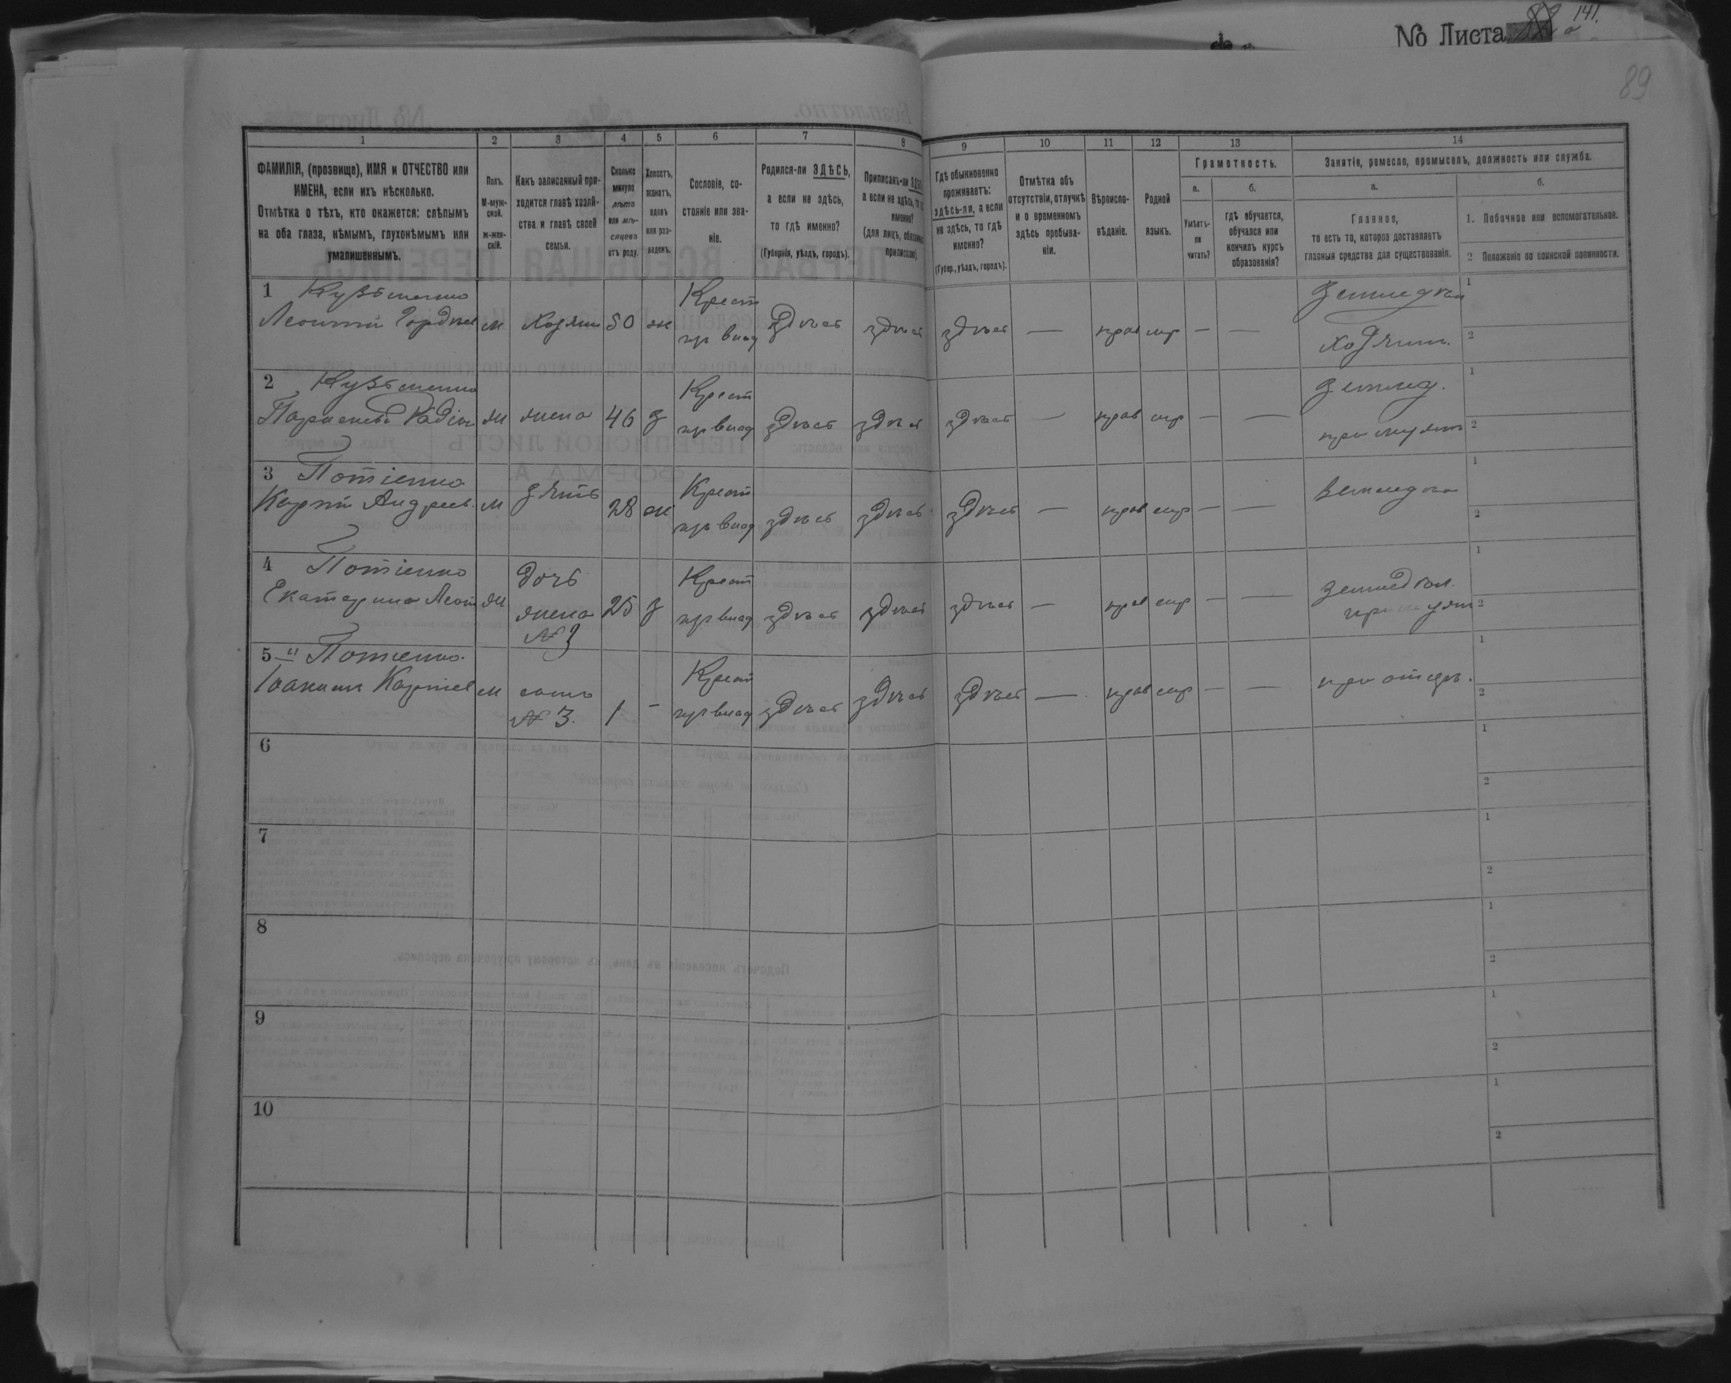 № Листа 141.
89
1 2 3 4 5 6 7 8 9 10 11 12 13 14
ФАМИЛІЯ, (прозвище), ИМЯ и ОТЧЕСТВО или ИМЕНА, если ихъ нѣсколько.
Отмѣтка о тѣхъ, кто окажется: слѣпымъ на оба глаза, нѣмымъ, глухонѣмымъ или умалишеннымъ.
Полъ.
М-муж-
ской.
ж-жен-
скій.
Какъ записанный при-
ходится главѣ хозяй-
ства и главѣ своей
семьи.
Сколько
минуло
лѣтъ
или мѣ-
сяцевъ
отъ роду.
Холостъ,
женатъ,
вдовъ
или раз-
веденъ.
Сословіе, со-
стояніе или зва-
ніе.
Родился-ли ЗДѢСЬ,
а если не здѣсь,
то гдѣ именно?
(Губернія, уѣздъ, городъ).
Приписанъ-ли
а если не здѣсь, то
именно?
(для лицъ,
Гдѣ обыкновенно
проживаетъ:
здѣсь-ли, а если
не здѣсь, то гдѣ
именно?
(Губер., уѣздъ, городъ).
Отмѣтка объ
отсутствіи, отлучкѣ
и о временномъ
здѣсь пребыва-
ніи.
Вѣроиспо-
вѣданіе.
Родной
языкъ.
Грамотность.
а.
Умѣетъ-
ли
читать?
б.
гдѣ обучается,
обучался или
кончилъ курсъ
образованія?
Занятіе, ремесло, промыселъ, должность или служба.
а.
Главное,
то есть то, которое доставляетъ
главныя средства для существованія.
б.
1. Побочное или вспомогательное.
2 Положеніе по воинской повинности.
1 Кузьменко
Леонтій Гордѣев м хозяин 50 ж Крест здѣсь здѣсь здѣсь — прав мр — — Земледѣл
хозяин.
2 Кузьменко
ж жена 46 з Крест здѣсь здѣсь здѣсь — прав мр — — Землед.
при мужѣ
3 Потіенко
Карпъ Андреев. м зять 28 ж Крест здѣсь здѣсь здѣсь — прав мр — — Земледѣл
4 Потіенко
Екатерина Леон ж дочь
жена
№ 3 25 з Крест здѣсь здѣсь здѣсь — прав мр — — Земледѣл.
при мужѣ
5 Потіенко.
Іоакимъ Карпов м сынъ
№ 3. 1 - Крест здѣсь здѣсь здѣсь — прав мр — — при отцѣ.
6
7
8
9
10